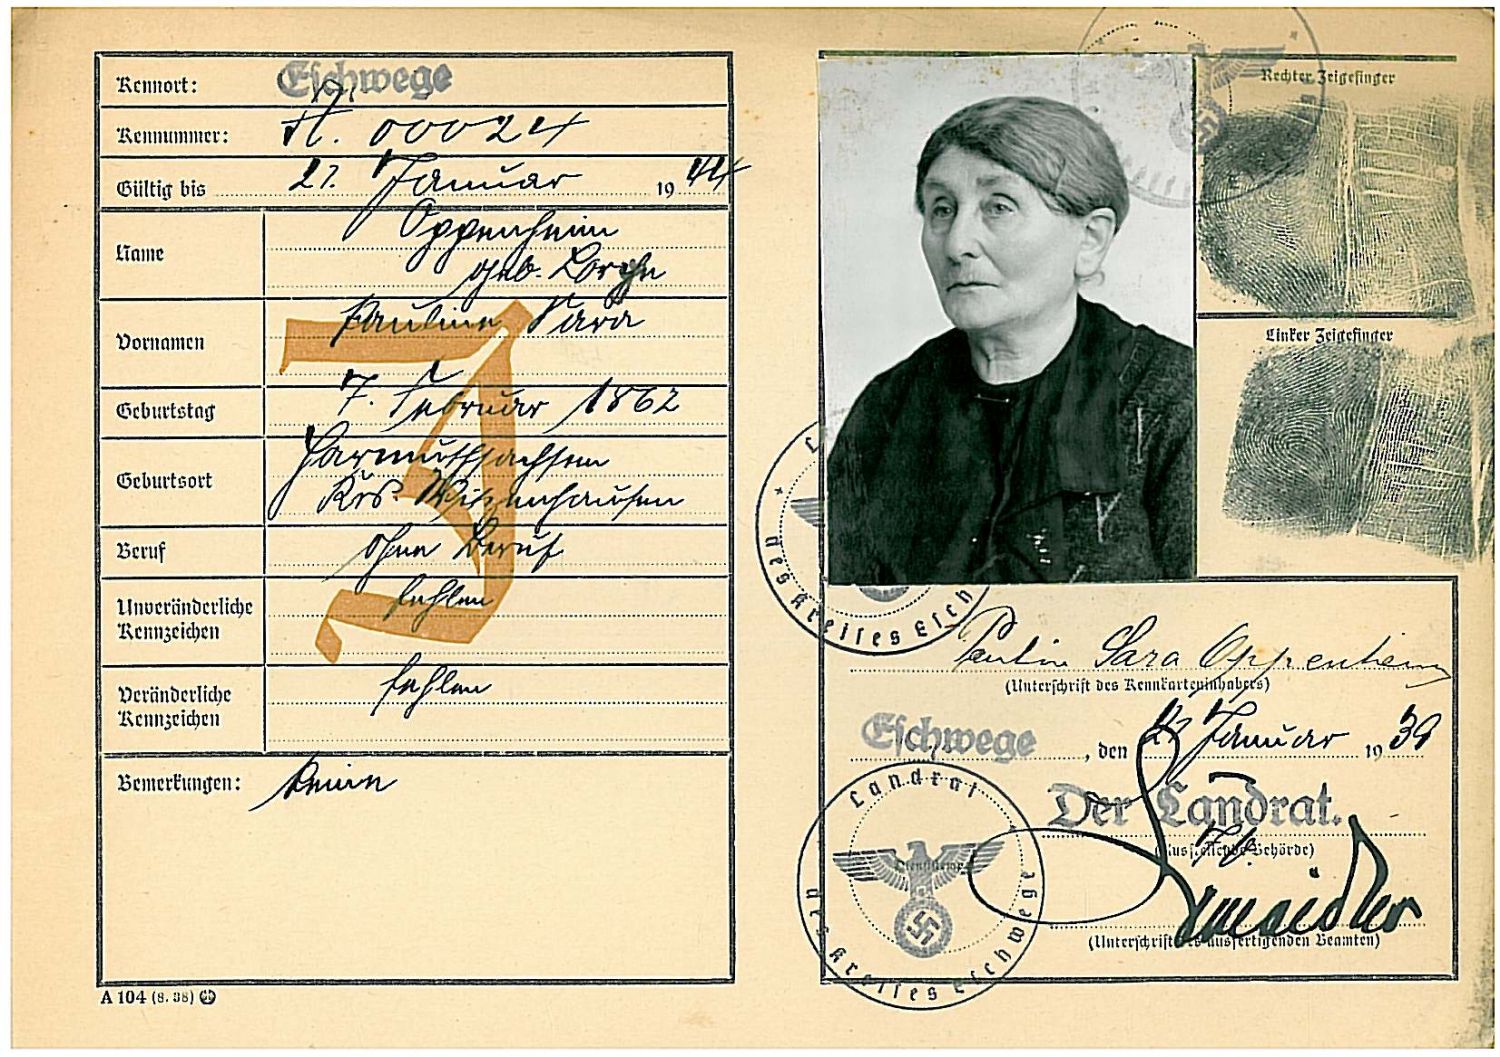 Kennort: Eschwege
Kennummer: A. 00024
Gültig bis 27. Januar 1944
Name Oppenheim
geb. Lorge
Vornamen Pauline Sara
Geburtstag 7. Februar 1862
Geburtsort Harmuthsachsen
Krs. Witzenhausen
Beruf ohne Beruf
Unveränderliche Kennzeichen fehlen
Veränderliche Kennzeichen fehlen
Bemerkungen: Keine
J
A 104 (8. 38)
Rechter Zeigefinger
Linker Zeigefinger
des Kreises Esch
Paulin Sara Oppenheim
(Unterschrift des Kennkarteninhabers)
Eschwege, den 27 Januar 1939
Der Landrat.
(Ausstellende Behörde)
(Unterschrift des ausfertigenden Beamten)
Landrat
des Kreises Eschwege